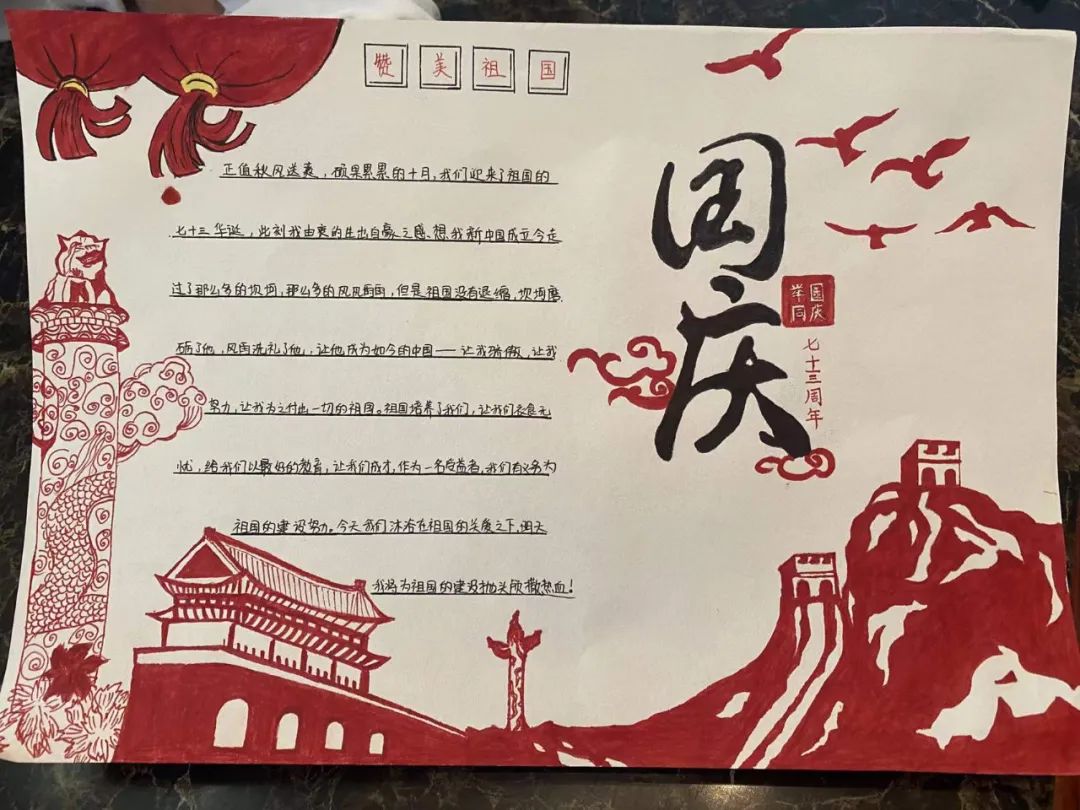 赞美祖国
正值秋风送爽,硕果累累的十月,我们迎来了祖国的
七十三华诞,此刻我由衷的生出自豪之感、想我新中国成立今走
过了那么多的坎坷,那么多的风风雨雨,但是祖国没有退缩,坎坷磨
砺了他,风雨洗礼了他,让他成为如今的中国——让我骄傲,让我
努力,让我为之付出一切的祖国。祖国培养了我们,让我们衣食无
忧,给我们以最好的教育,让我们成才,作为一名受益者,我们有义务为
祖国的建设努力。今天我们沐浴在祖国的关爱之下,明天
我将为祖国的建设抛头颅撒热血!
国庆
举国同庆
七十三周年